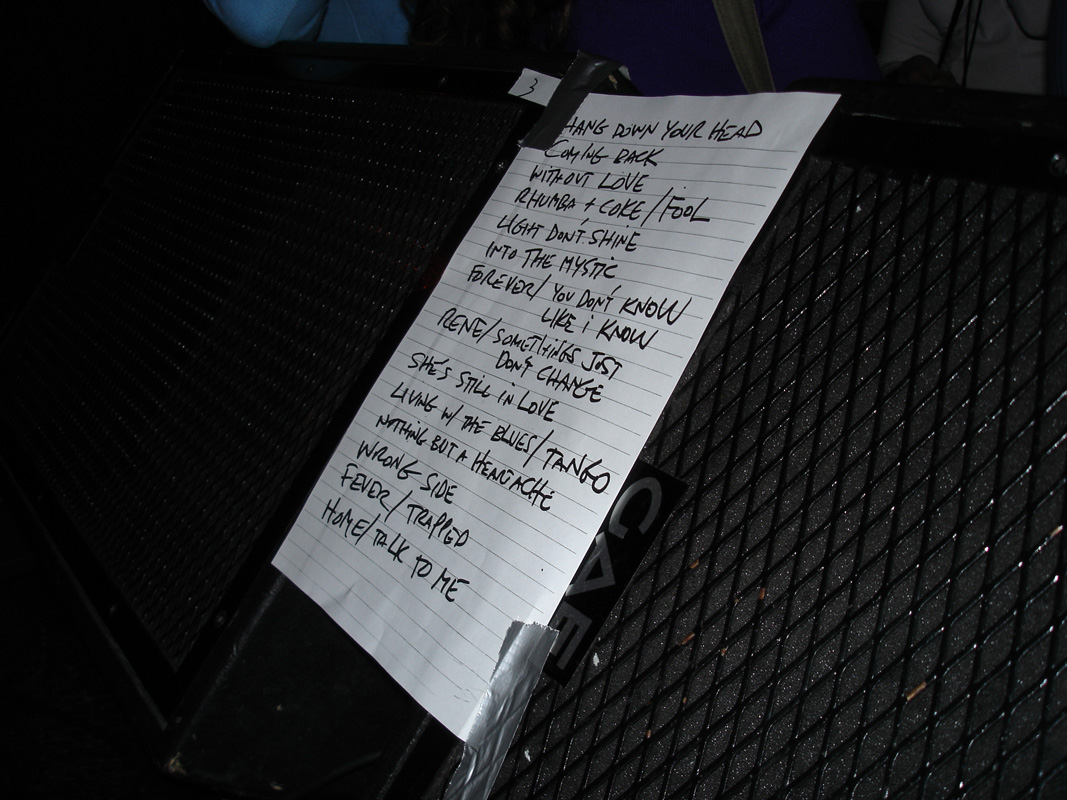 3
HANG DOWN YOUR HEAD
COMING BACK
WITHOUT LOVE
RHUMBA + COKE / FOOL
LIGHT DON'T SHINE
INTO THE MYSTIC
FOREVER / YOU DON'T KNOW
LIKE i KNOW
RENE / SOMETHINGS JUST
DON'T CHANGE
SHE'S STILL IN LOVE
LIVING W/ THE BLUES / TANGO
NOTHING BUT A HEARTACHE
WRONG SIDE
FEVER / TRAPPED
HOME / TALK TO ME
CAE